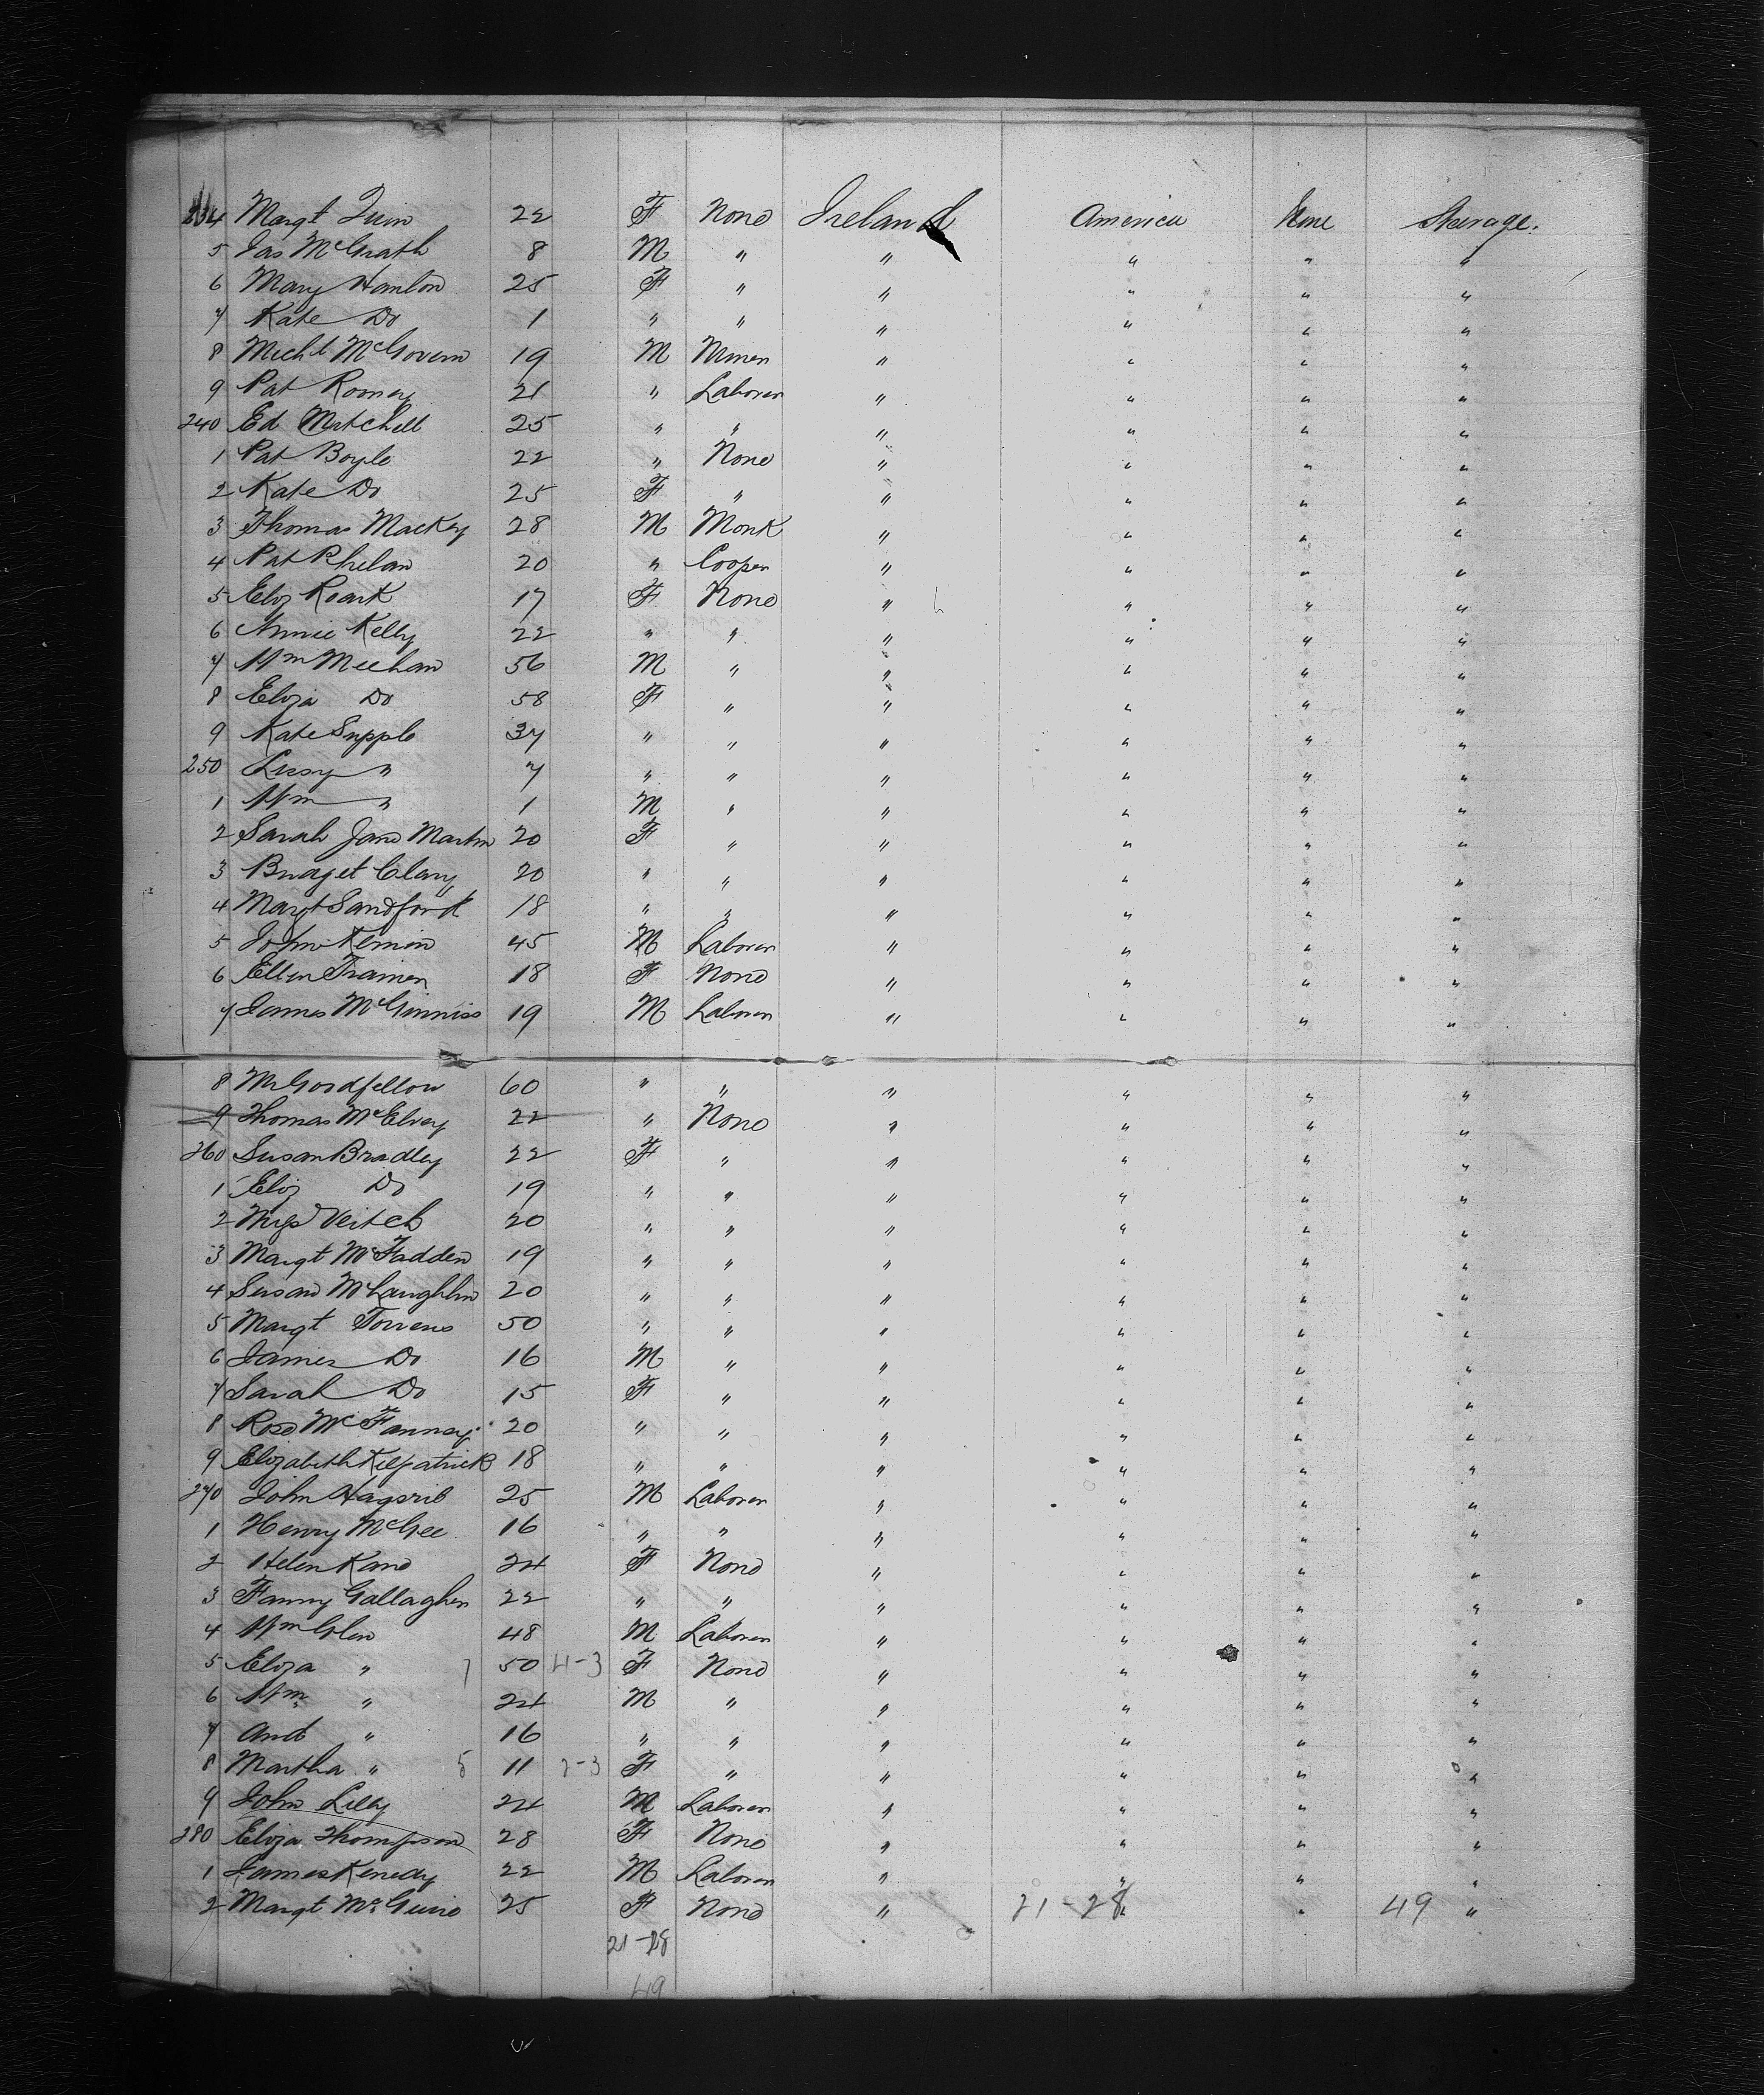 234 Margt Quin 22 F None Ireland America None Steerage.
5 Jas McGrath 8 M " " " " "
6 Mary Hanlon 25 F " " " " "
7 Kate Do 1 " " " " " "
8 Michl McGovern 19 M Miner " " " "
9 Pat Rooney 21 " Laborer " " " "
240 Ed Mitchell 25 " " " " " "
1 Pat Boyle 22 " None " " " "
2 Kate Do 25 F " " " " "
3 Thomas Mackey 28 M Monk " " " "
4 Pat Phelan 20 " Cooper " " " "
5 Eliz Roark 17 F None " " " "
6 Annie Kelly 22 " " " " " "
7 Wm Meehan 56 M " " " " "
8 Eliza Do 58 F " " " " "
9 Kate Supple 37 " " " " " "
250 Lizzy " 7 " " " " " "
1 Wm " 1 M " " " " "
2 Sarah Jane Martin 20 F " " " " "
3 Bridget Clary 20 " " " " " "
4 Margt Sandford 18 " " " " " "
5 John 45 M Laborer " " " "
6 Ellen Trainer 18 F None " " " "
7 James McGinniss 19 M Laborer " " " "
8 Goodfellow 60 " " " " " "
9 Thomas McElvey 22 " None " " " "
260 Susan Bradley 22 F " " " " "
1 Eliz Do 19 " " " " " "
2 Veitch 20 " " " " " "
3 Margt McFadden 19 " " " " " "
4 Susan McLaughlin 20 " " " " " "
5 Margt Torrens 50 " " " " " "
6 James Do 16 M " " " " "
7 Sarah Do 15 F " " " " "
8 Rose McFannay 20 " " " " " "
9 Elizabeth Kilpatrick 18 " " " " " "
270 John 25 M Laborer " " " "
1 Henry McGee 16 " " " " " "
2 Helen Kane 24 F None " " " "
3 Fanny Gallagher 22 " " " " " "
4 Wm Glen 48 M Laborer " " " "
5 Eliza " 50 4-3 F None " " " "
6 Wm " 24 M " " " " "
7 And " 16 " " " " " "
8 Martha " 5 11 2-3 F " " " " "
9 John Lilly 24 M Laborer " " " "
280 Eliza Thompson 28 F None " " " "
1 James Kenedy 22 M Laborer " " " "
2 Margt McGuire 25 F None " 21-28 " " 49 "
21-28
49